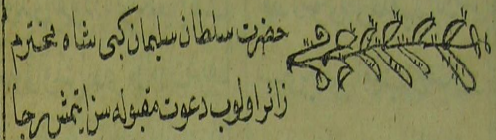 حضرت سلطان سلیمان کبی شاه محترم
زائر اولوب دعوت مقبوله سن ایتمش رجا